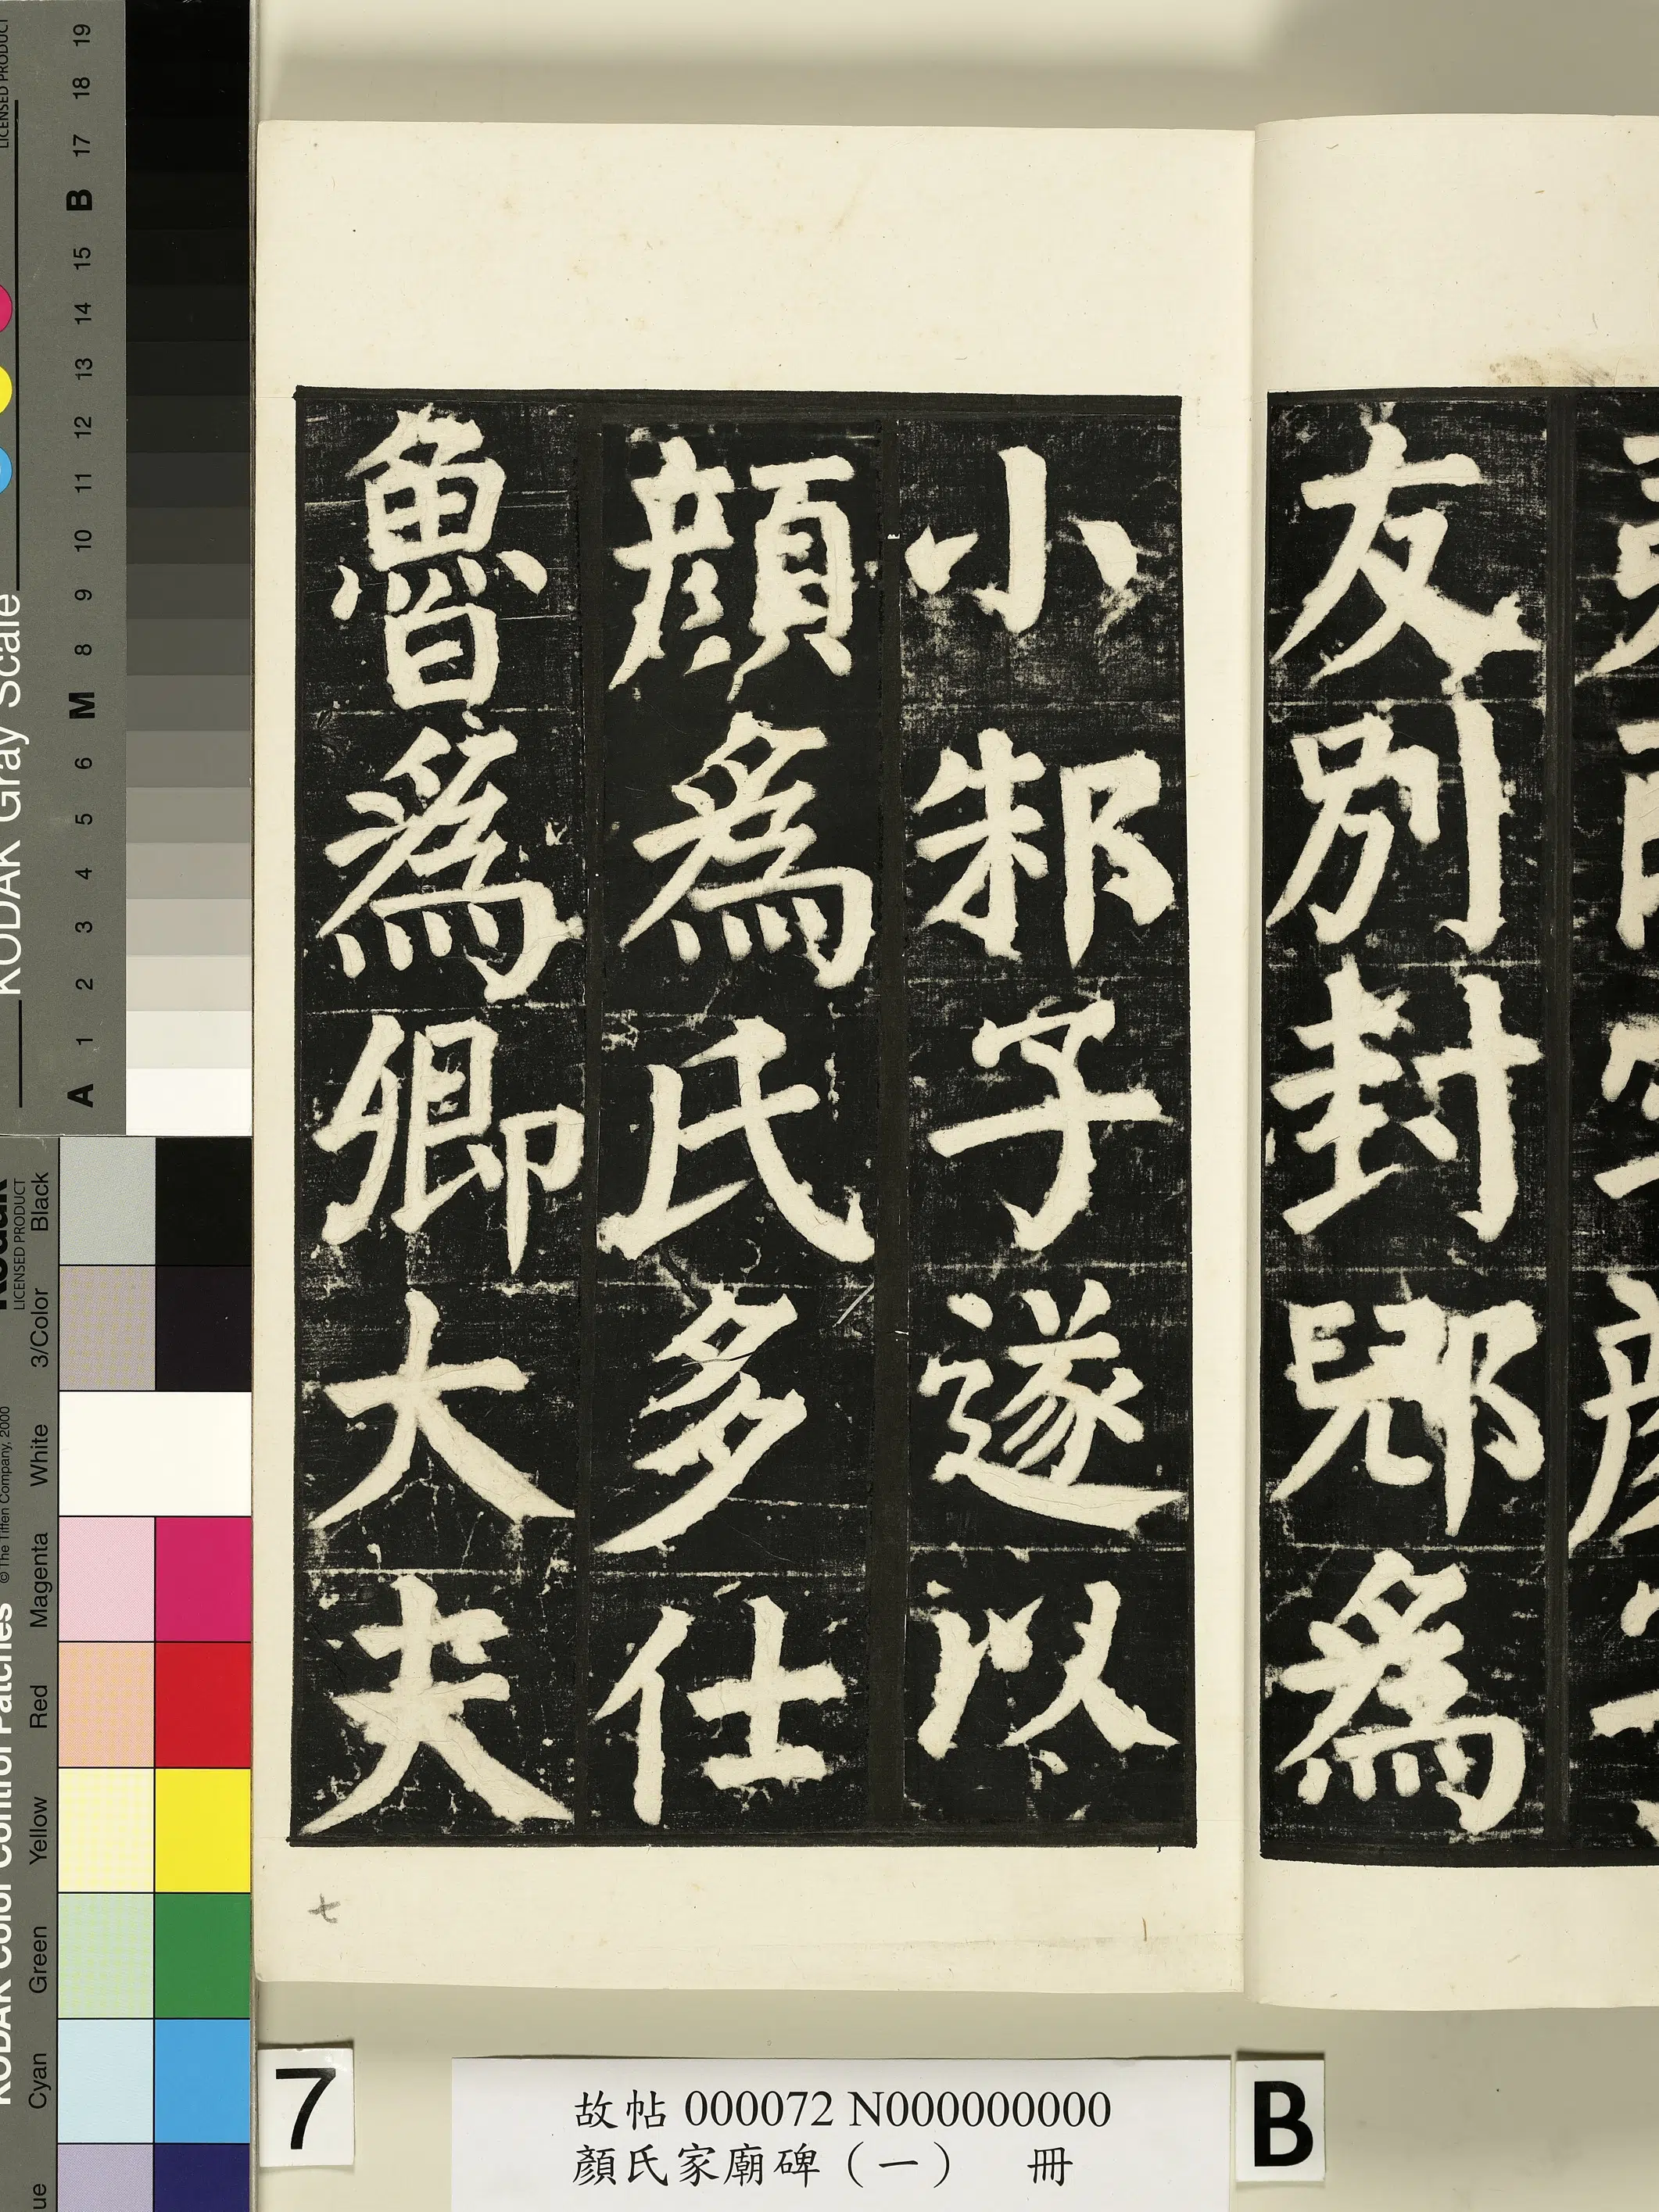 友別封郳為
小邾子遂以
顏為氏多仕
魯為卿大夫
七
故帖 000072 N000000000
顏氏家廟碑（一） 冊
7
B
KODAK Gray Scale
LICENSED PRODUCT
A 1 2 3 4 5 6 M 8 9 10 11 12 13 14 15 B 17 18 19
KODAK Color Control Patches
© The Tiffen Company, 2000
Kodak
LICENSED PRODUCT
Cyan Green Yellow Red Magenta White 3/Color Black